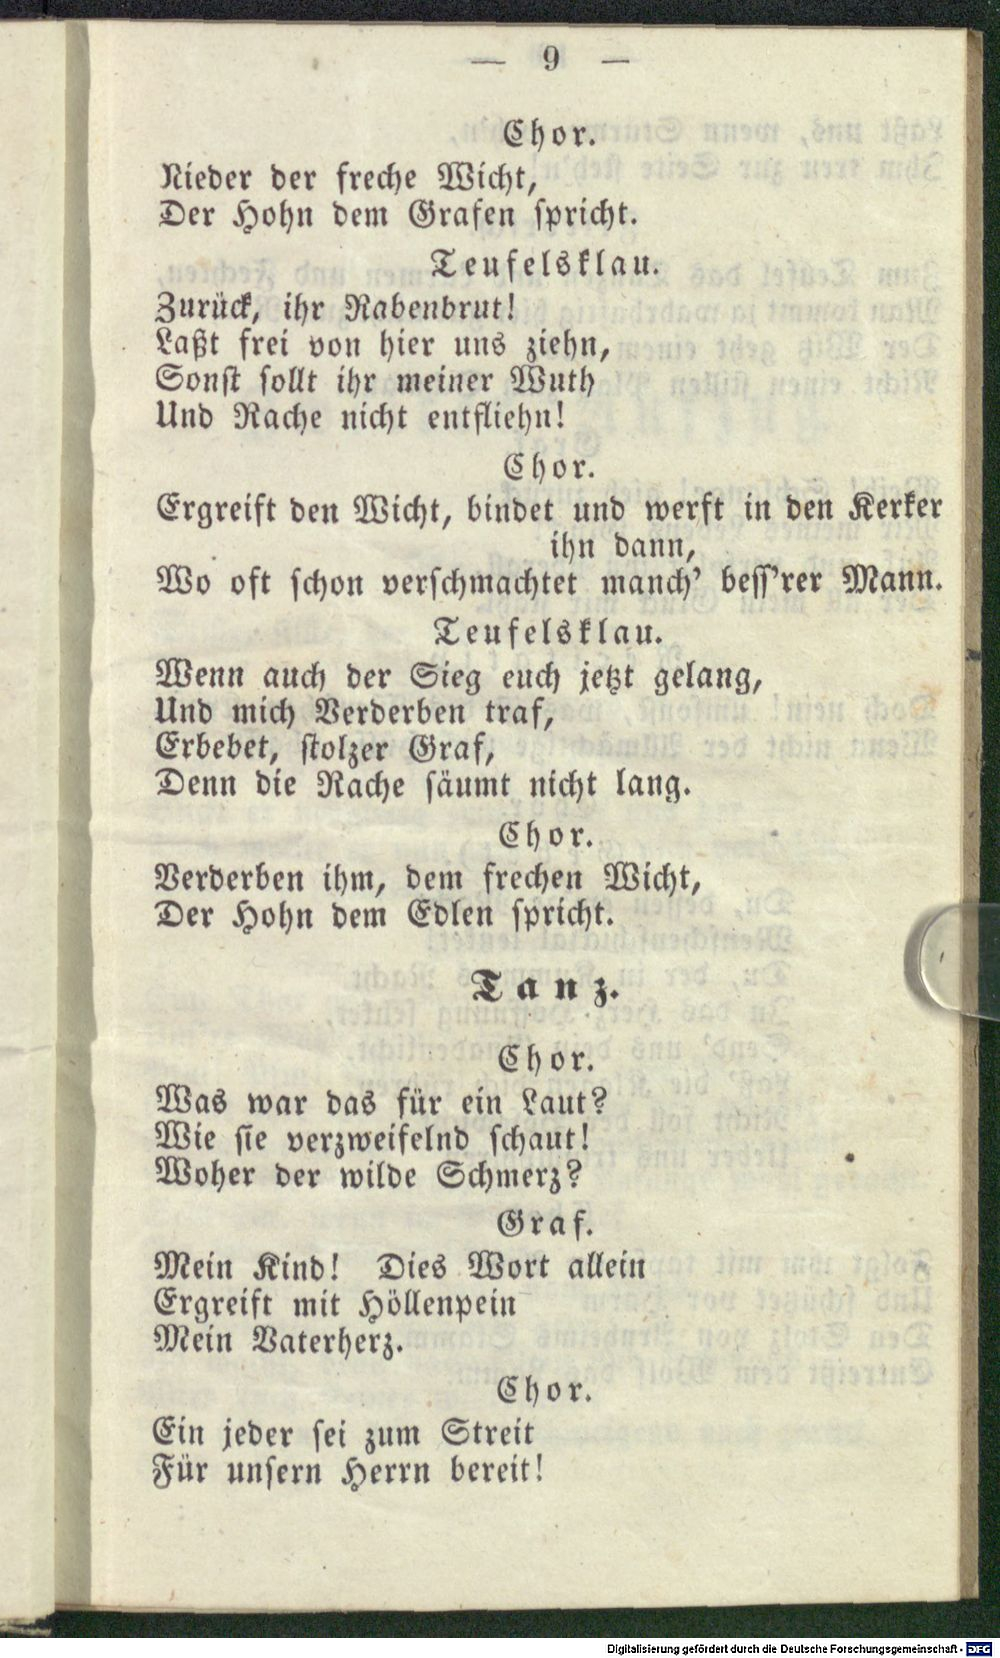 — 9 —
Chor.
Nieder der freche Wicht,
Der Hohn dem Grafen spricht.
Teufelsklau.
Zurück, ihr Rabenbrut!
Laßt frei von hier uns ziehn,
Sonst sollt ihr meiner Wuth
Und Rache nicht entfliehn!
Chor.
Ergreift den Wicht, bindet und werft in den Kerker
ihn dann,
Wo oft schon verschmachtet manch' bess'rer Mann.
Teufelsklau.
Wenn auch der Sieg euch jetzt gelang,
Und mich Verderben traf,
Erbebet, stolzer Graf,
Denn die Rache säumt nicht lang.
Chor.
Verderben ihm, dem frechen Wicht,
Der Hohn dem Edlen spricht.
Tanz.
Chor.
Was war das für ein Laut?
Wie sie verzweifelnd schaut!
Woher der wilde Schmerz?
Graf.
Mein Kind! Dies Wort allein
Ergreift mit Höllenpein
Mein Vaterherz.
Chor.
Ein jeder sei zum Streit
Für unsern Herrn bereit!
Digitalisierung gefördert durch die Deutsche Forschungsgemeinschaft - DFG